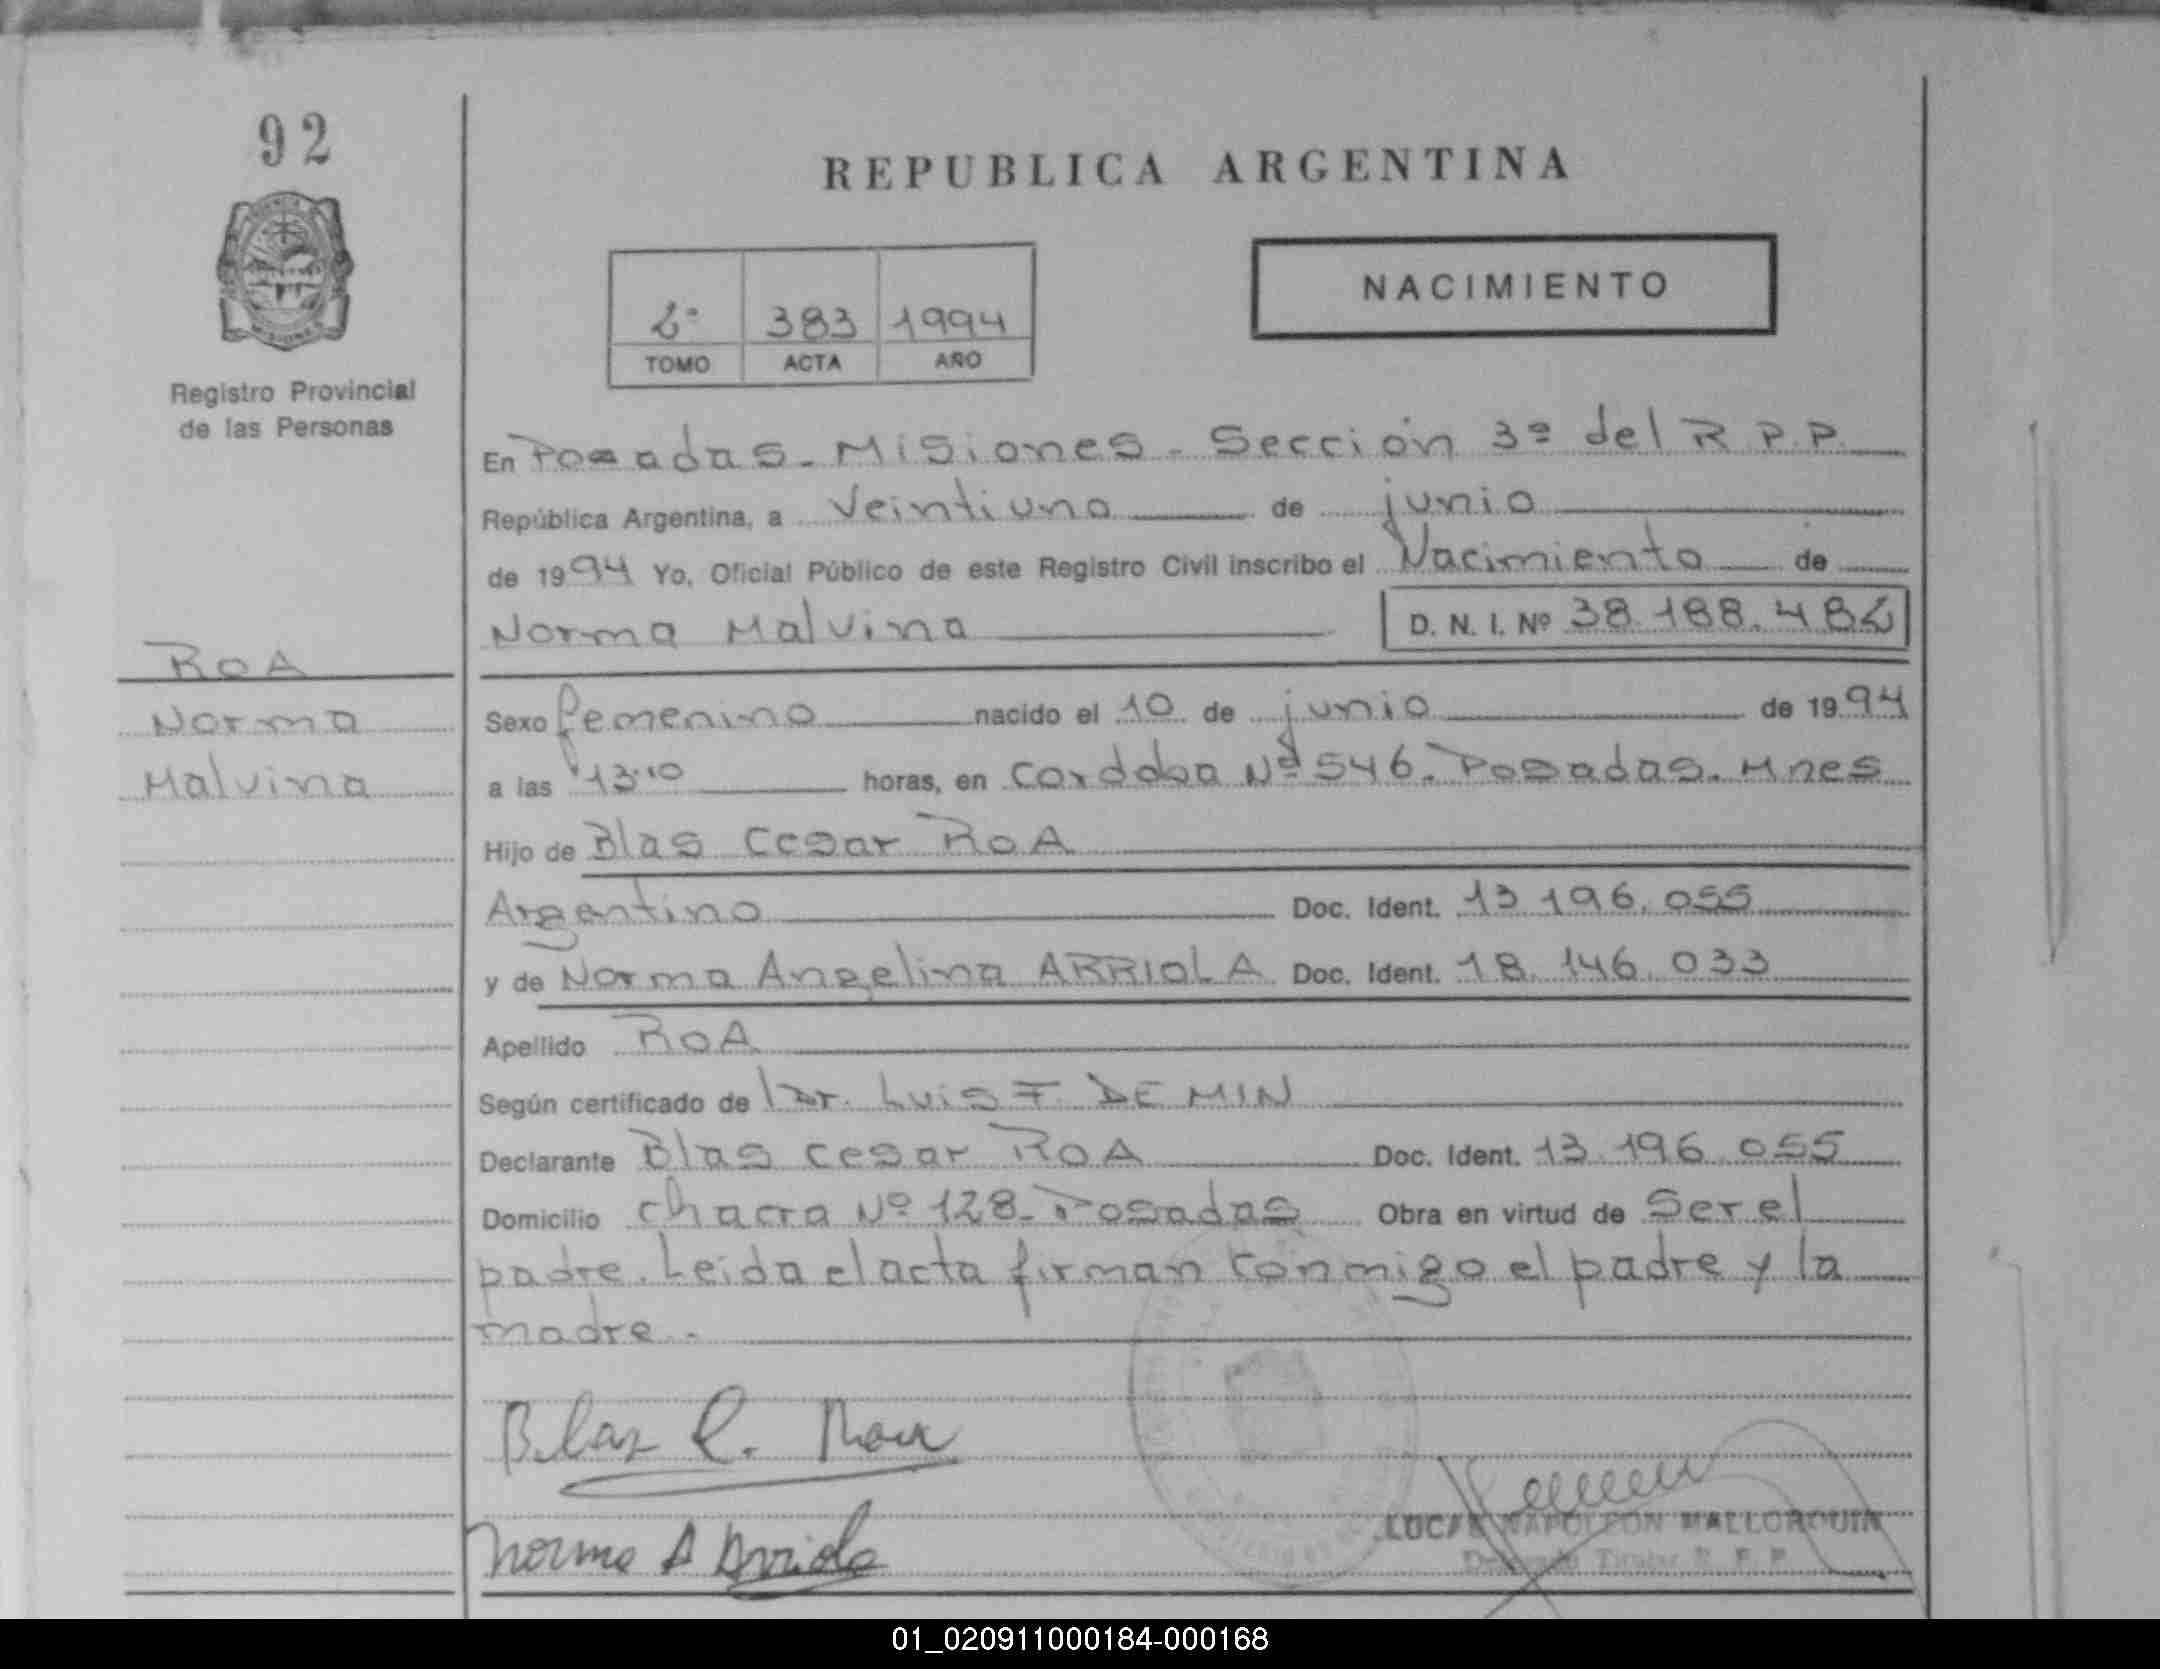 92
REPUBLICA ARGENTINA
NACIMIENTO
2º 383 1994
TOMO ACTA AÑO
Registro Provincial
de las Personas
En Posadas - Misiones - Sección 3ª del R.P.P.
República Argentina, a Veintiuno de junio
de 1994 Yo, Oficial Público de este Registro Civil inscribo el Nacimiento de
Norma Malvina D. N. I. Nº 38.188.482
ROA
Norma
Malvina
Sexo femenino nacido el 10 de junio de 1994
a las 13:10 horas, en Cordoba Nº 546. Posadas. Mnes
Hijo de Blas Cesar ROA
Argentino Doc. Ident. 13.196.055
y de Norma Angelina ARRIOLA Doc. Ident. 18.146.033
Apellido ROA
Según certificado de Dr. Luis F. DE MIN
Declarante Blas Cesar ROA Doc. Ident. 13.196.055
Domicilio Chacra Nº 128 - Posadas Obra en virtud de Ser el
padre. Leida el acta firman conmigo el padre y la
madre.-
Blas C. Roa
Norma A Arriola
LUCAS NAPOLEON MALLORQUIN
Delegado Titular R. P. P.
01_020911000184-000168